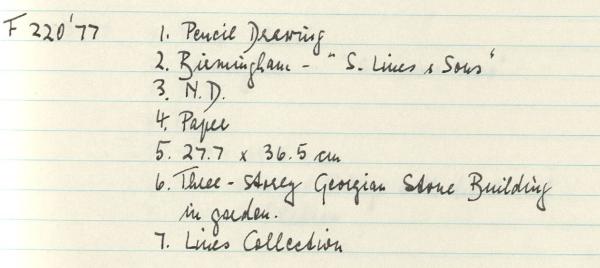 F 220'77 1. Pencil Drawing
2. Birmingham - "S. Lines & Sons"
3. N.D.
4. Paper
5. 27.7 x 36.5 cm
6. Three-storey Georgian Stone Building
in garden.
7. Lines Collection